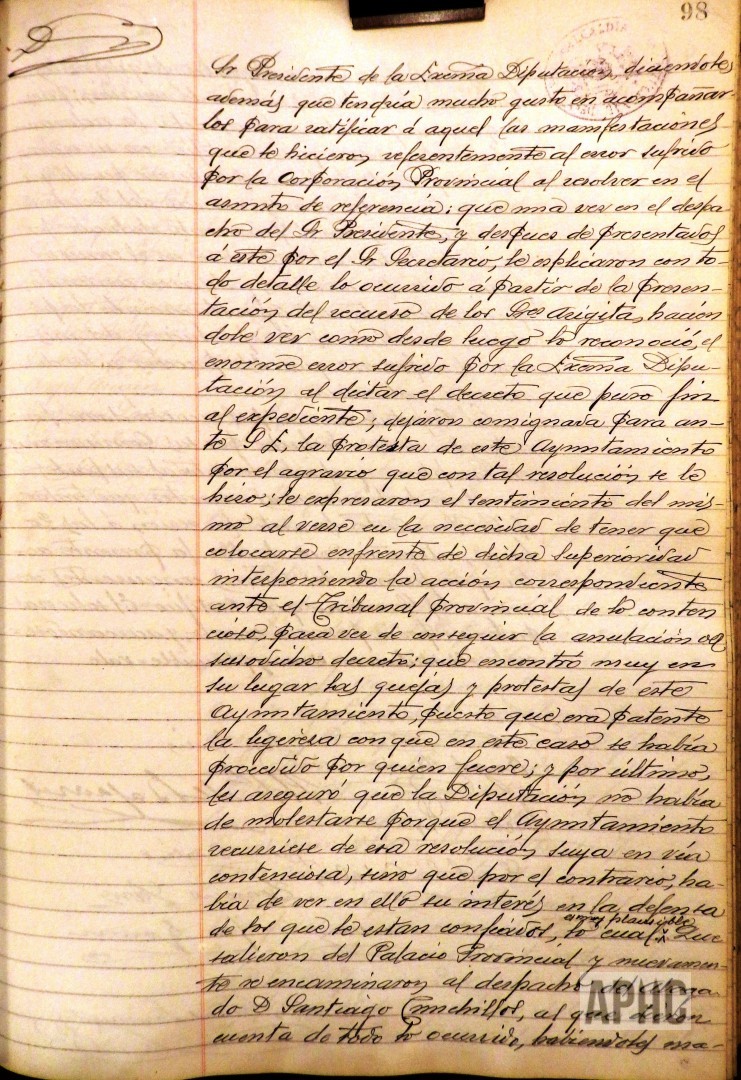 98
ALCALDIA
Sr Presidente de la Excma Diputación, diciendoles
además que tendría mucho gusto en acompañar-
los para ratificar á aquel las manifestaciones
que le hicieron referentemente al error sufrido
por la Corporación Provincial al resolver en el
asunto de referencia; que una vez en el despa-
cho del Sr Presidente, y despues de presentados
á este por el Sr Secretario, le esplicaron con to-
do detalle lo ocurrido á partir de la presen-
tación del recurso de los Sres Arigita, hacien
dole ver como desde luego lo reconoció, el
enorme error sufrido por la Excma Dipu-
tación al dictar el decreto que puso fin
al expediente; dejaron consignada para an-
te S E, la protesta de este Ayuntamiento
por el agravio que con tal resolución se le
hizo; le expresaron el sentimiento del mis-
mo al verse en la necesidad de tener que
colocarse enfrente de dicha superioridad
interponiendo la acción correspondiente
ante el Tribunal provincial de lo conten
cioso, para ver de conseguir la anulación del
susodicho decreto; que encontró muy en
su lugar las quejas y protestas de este
Ayuntamiento, puesto que era patente
la ligereza con que en este caso se había
procedido por quien fuere; y por último,
les aseguró que la Diputación no había
de molestarse porque el Ayuntamiento
recurriese de esa resolución suya en vía
contenciosa, sino que por el contrario, ha-
bía de ver en ello su interés en la defensa
de los que le estan confiados, lo cual es muy plausible. Que
salieron del Palacio Provincial y nuevamen-
te se encaminaron al despacho del
do D Santiago Cunchillos, al que
cuenta de todo lo ocurrido, habiendoles ma-
APHC